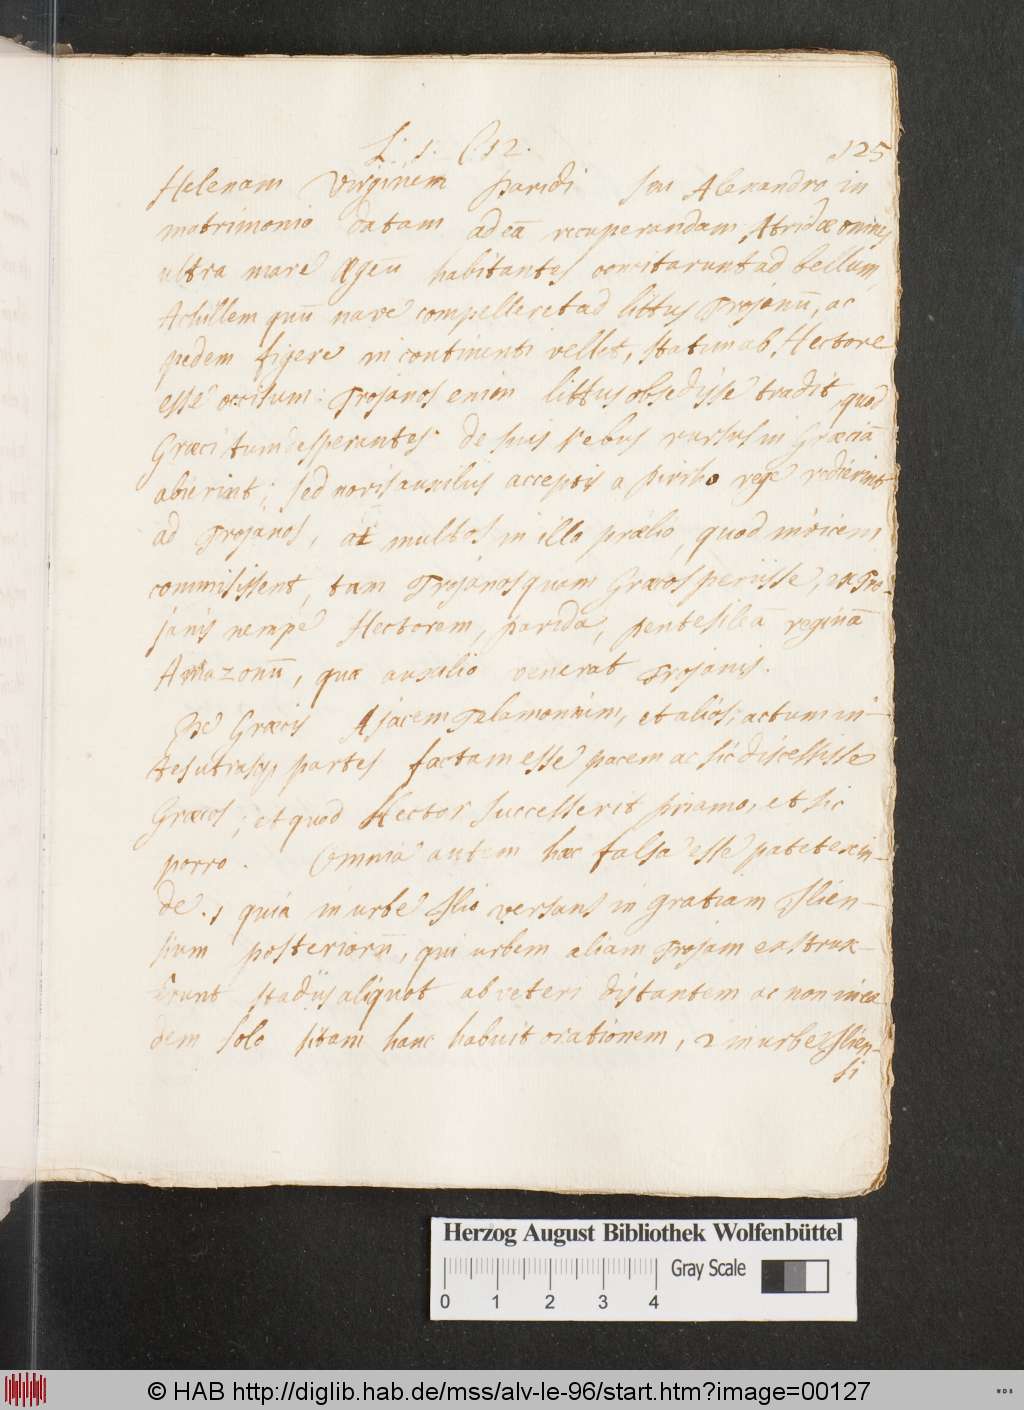 L: 1. C. 12.
125
Helenam Virginem Paridi seu Alexandro in
matrimonio datam ad eā recuperandam, Atridæ omnes
ultra mare Ægeū habitantes concitarunt ad bellum,
Achillem quū nave compelleret ad littus Trojanū, ac
pedem figere in continenti vellet, statim ab Hectore
esse occisum: Trojanos enim littus obsedisse tradit quod
Græci tum desperantes de suis rebus rursus in Græciā
abierint; sed novis auxiliis acceptis a Pirrho rege redierint
ad Trojanos, at multos in illo prælio, quod invicem
commisissent, tam Trojanos quam Græcos periisse, ex Tro-
janis nempe Hectorem, Paridē, Pentesileā reginā
Amazonū, quæ auxilio venerat Trojanis.
De Græcis Ajacem Telamonium, et alios; actum in-
ter utrasq; partes factam esse pacem ac sic discessisse
Græcos; et quod Hector successerit Priamo, et sic
porro. Omnia autem hæc falsa esse patet exin-
de. 1 quia in urbe Ilio versans in gratiam Ilien-
sium posteriorū, qui urbem aliam Trojam exstrux-
erunt stadiis aliquot ab veteri distantem ac non in ea
dem solo sitam hanc habuit orationem, 2 in urbe Ilien-
si
Herzog August Bibliothek Wolfenbüttel
Gray Scale
0 1 2 3 4
© HAB http://diglib.hab.de/mss/alv-le-96/start.htm?image=00127